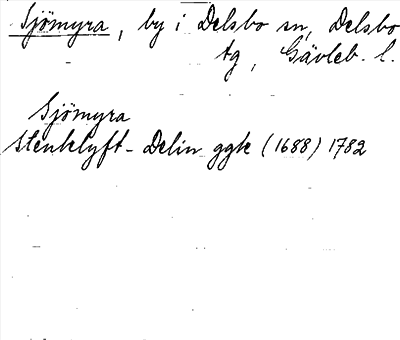 Sjömyra, by i Delsbo sn, Delsbo
tg, Gävleb. l.
Sjömyra
Stenklyft - Delin ggk (1688) 1782